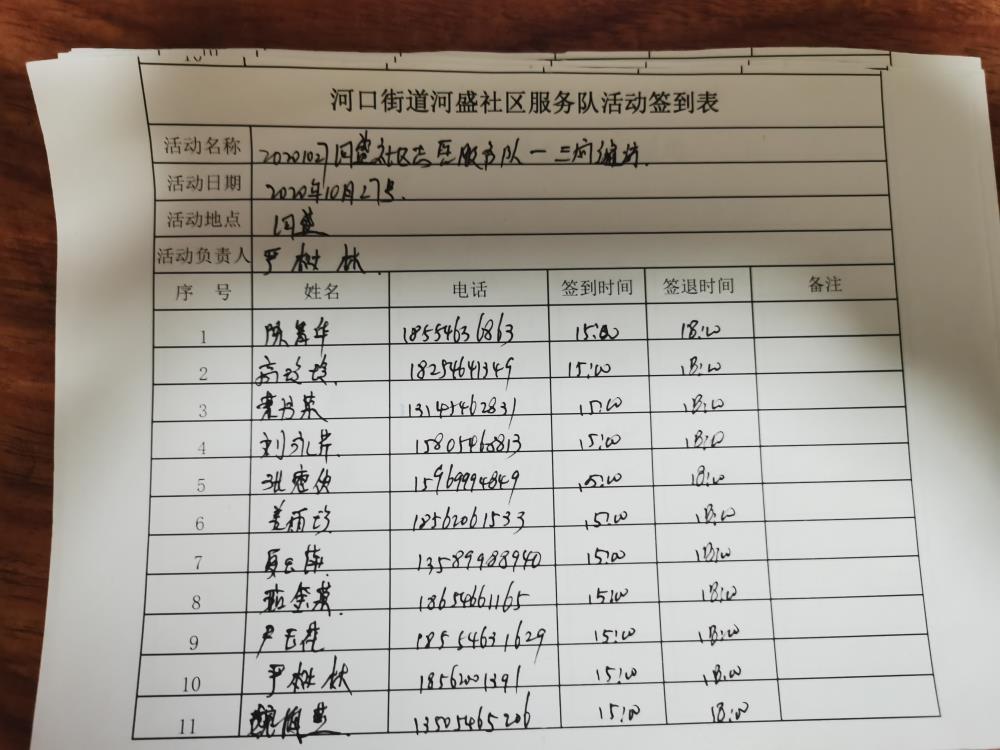 河口街道河盛社区服务队活动签到表
活动名称 20201027河盛社区志愿服务队一三河
活动日期 2020年10月27号.
活动地点 河盛
活动负责人 严树林.
序 号 姓名 电话 签到时间 签退时间 备注
1 18554636863 15:00 18:00
2 18254641349 15:00 18:00
3 13145462831 15:00 18:00
4 15805468813 15:00 18:00
5 15969994849 15:00 18:00
6 18562061533 15:00 18:00
7 13589988940 15:00 18:00
8 18654661165 15:00 18:00
9 18554631629 15:00 18:00
10 严树林 18562001391 15:00 18:00
11 13505465206 15:00 18:00